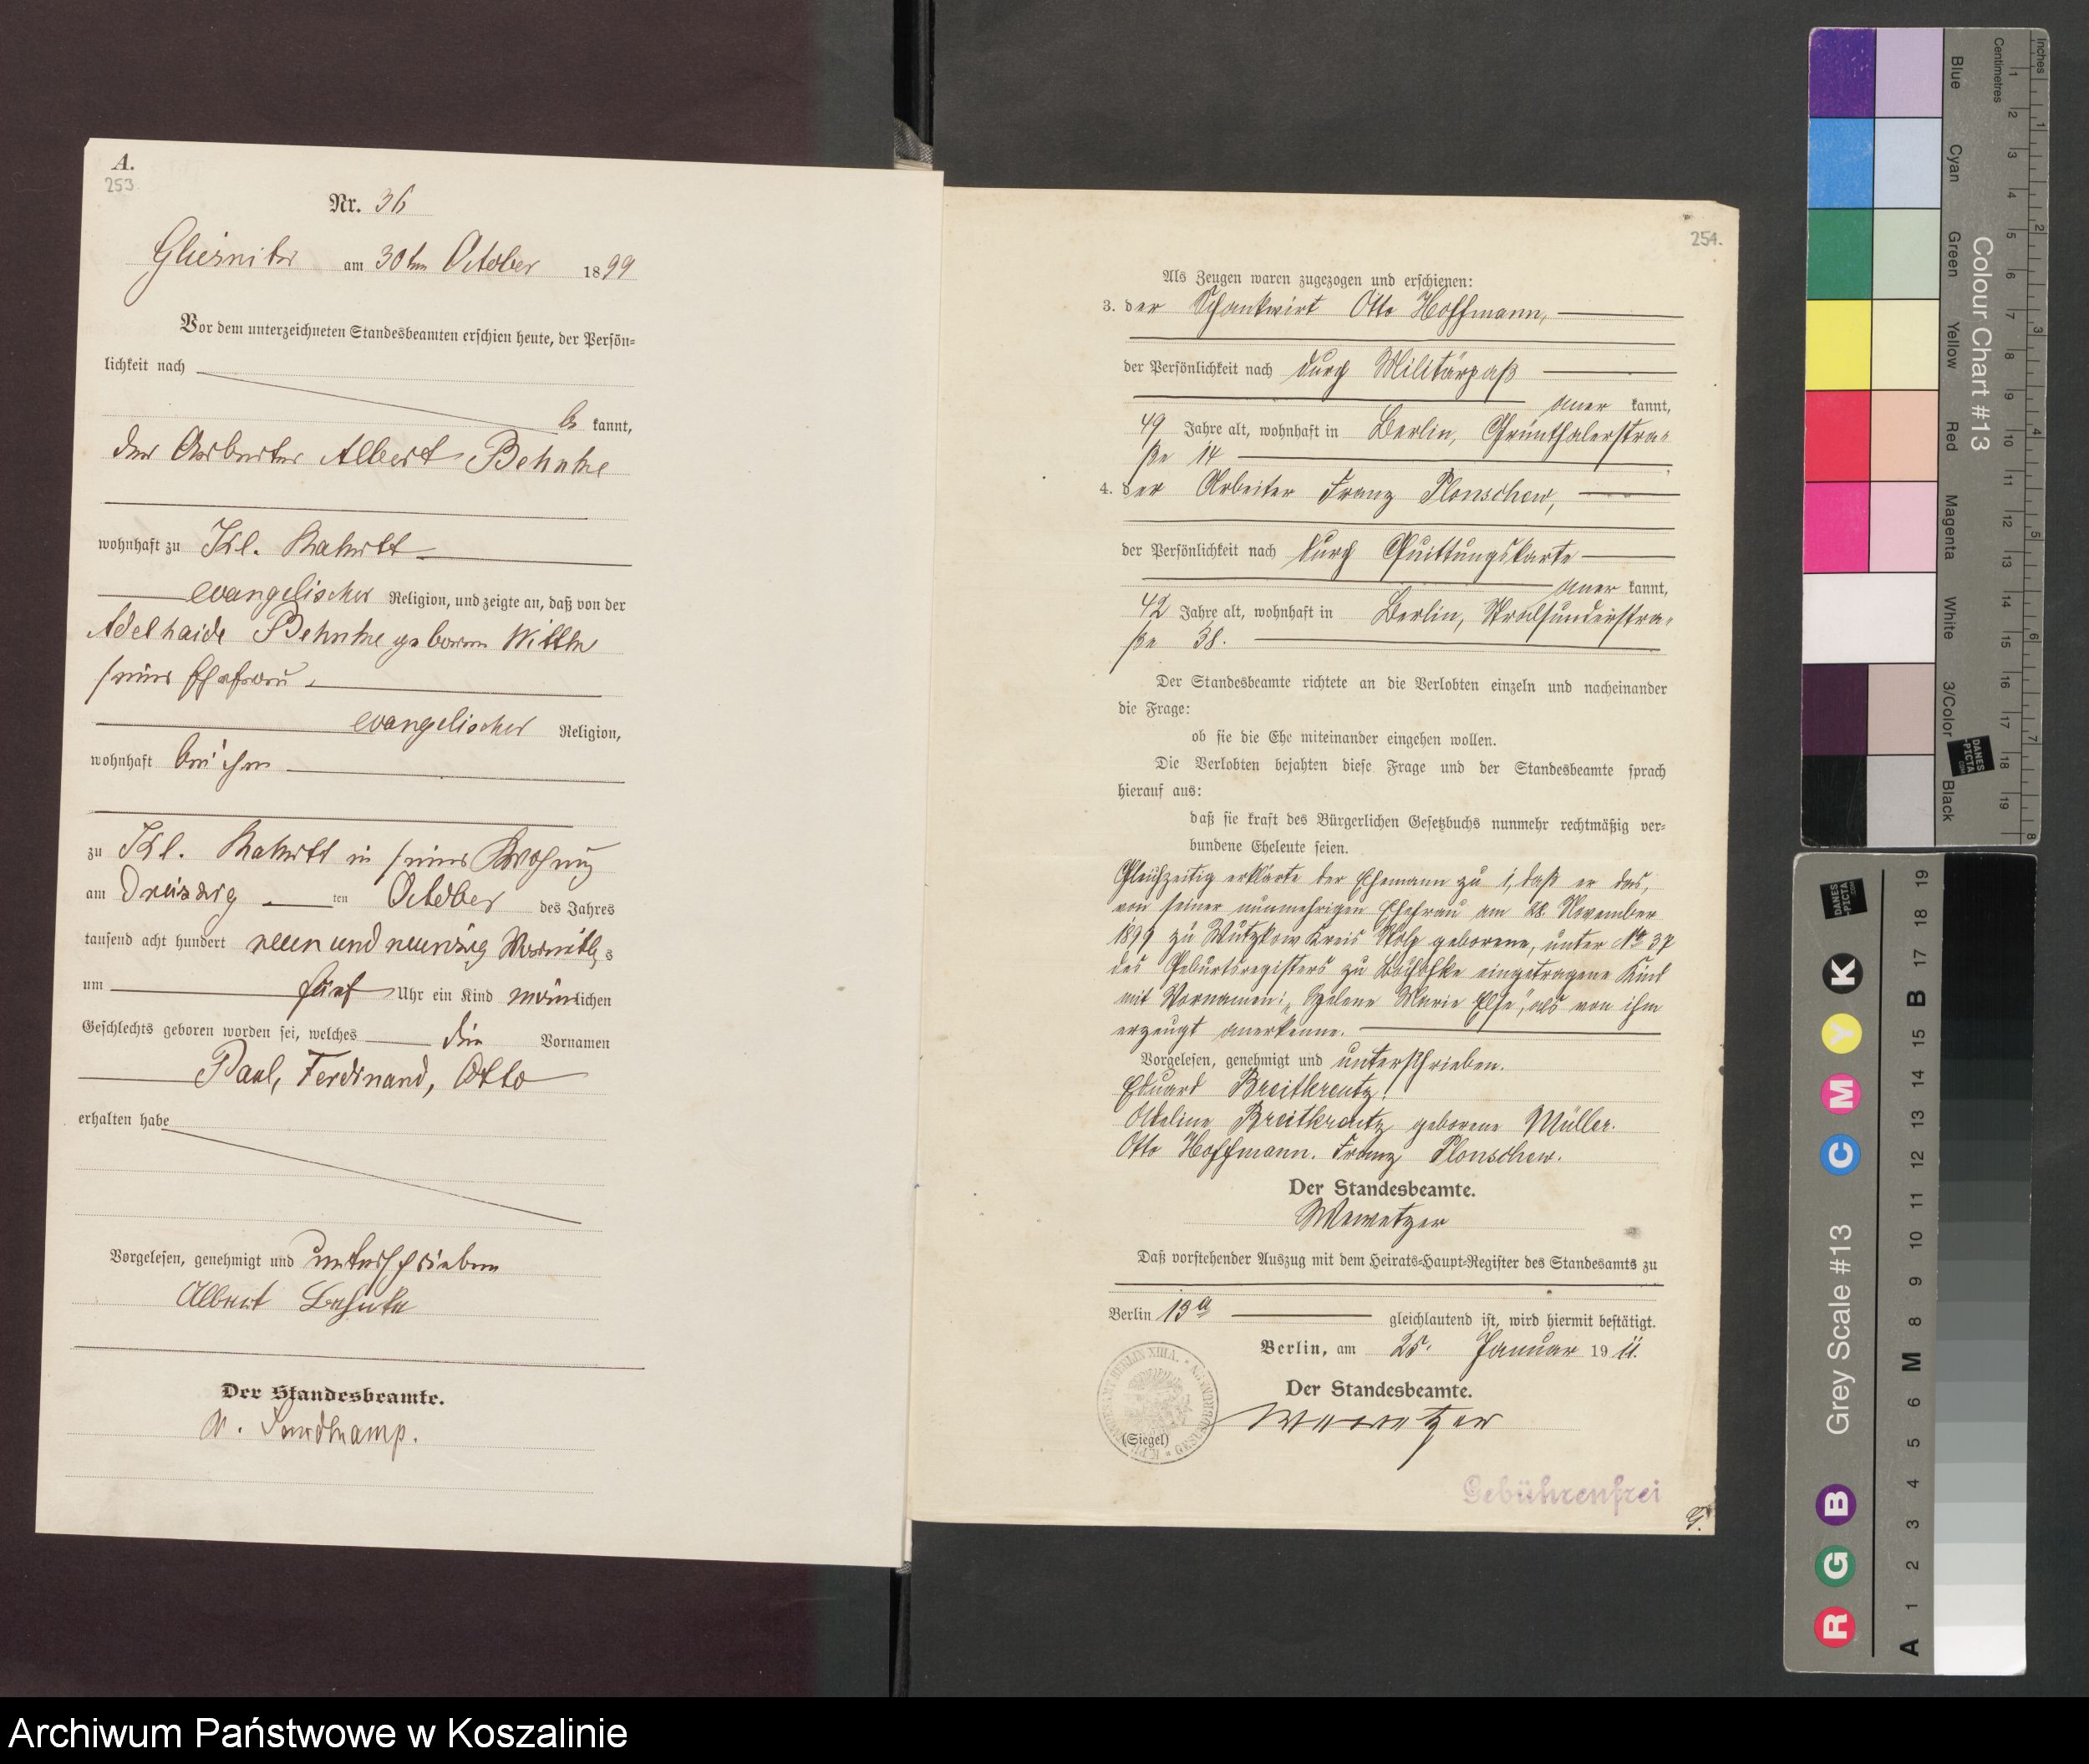 A.
253
Nr. 36
Gliesnitz am 30ten October 1899
Vor dem unterzeichneten Standesbeamten erschien heute, der Persön=
lichkeit nach
be kannt,
der Arbeiter Albert Behnke
wohnhaft zu Kl. Rakitt
evangelischer Religion, und zeigte an, daß von der
Adelhaide Behnke geboren
seiner Ehefrau
evangelischer Religion,
wohnhaft bei ihm
zu Kl. Rakitt in seiner Wohnung
am dreiszig ten October des Jahres
tausend acht hundert neun und neunzig Vormittags
um fünf Uhr ein Kind männlichen
Geschlechts geboren worden sei, welches die Vornamen
Paul, Ferdinand, Otto
erhalten habe
Vorgelesen, genehmigt und unterschrieben
Albert Behnke
Der Standesbeamte.
Sandkamp.
254.
Als Zeugen waren zugezogen und erschienen:
3. der Schankwirt Otto Hoffmann,
der Persönlichkeit nach durch Militärpaß
aner kannt,
49 Jahre alt, wohnhaft in Berlin, Grünthalerstra=
ße 14
4. der Arbeiter Franz Plonschew,
der Persönlichkeit nach durch Quittungskarte
aner kannt,
42 Jahre alt, wohnhaft in Berlin, Stralsunderstra=
ße 38.
Der Standesbeamte richtete an die Verlobten einzeln und nacheinander
die Frage:
ob sie die Ehe miteinander eingehen wollen.
Die Verlobten bejahten diese Frage und der Standesbeamte sprach
hierauf aus:
daß sie kraft des Bürgerlichen Gesetzbuchs nunmehr rechtmäßig ver=
bundene Eheleute seien.
Gleichzeitig erklärte der Ehemann zu 1, daß er das,
von seiner nunmehrigen Ehefrau am 28. November
1899 zu Wutzkow Kreis Stolp geborene, unter No 37
des Geburtsregisters zu eingetragene Kind
mit Vornamen: „Helene Marie Else", als von ihm
erzeugt anerkenne.
Vorgelesen, genehmigt und unterschrieben.
Eduard Breitkreutz.
Adeline Breitkreutz geborene Müller.
Otto Hoffmann. Franz Plonschew.
Der Standesbeamte.
Wawetzer
Daß vorstehender Auszug mit dem Heirats=Haupt=Register des Standesamts zu
Berlin 13a gleichlautend ist, wird hiermit bestätigt.
Berlin, am 25. Januar 1911.
Der Standesbeamte.
Wawetzer
(Siegel)
Gebührenfrei
Inches
Centimetres
Colour Chart #13
Blue
Cyan
Green
Yellow
Red
Magenta
White
3/Color
Black
1 2 3 4 5 6 7 8 9 10 11 12 13 14 15 16 17 18 19
1 2 3 4 5 6 7 8
DANES-PICTA.COM
Grey Scale #13
R G B C M Y K
A 1 2 3 4 5 6 M 8 9 10 11 12 13 14 15 B 17 18 19
DANES-PICTA.COM
Archiwum Państwowe w Koszalinie